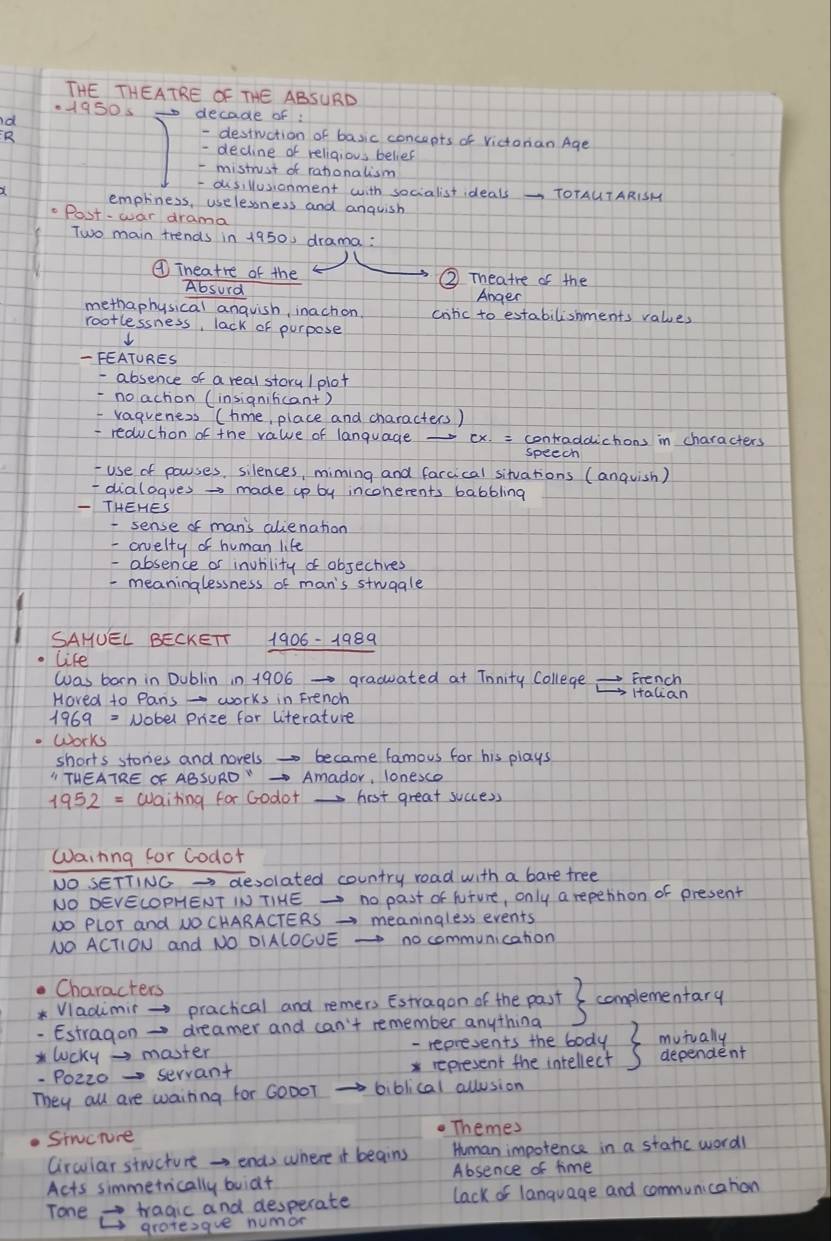 THE THEATRE OF THE ABSURD
• 1950s → decade of :
- destruction of basic concepts of Victorian Age
- decline of religious belief
- mistrust of rationalism
- disillusionment with socialist ideals → TOTALITARISM
emptiness, uselessness and anguish
• Post-war drama
Two main trends in 1950s drama :
① Theatre of the
Absurd
② Theatre of the
Anger
methaphysical anguish, inaction,
rootlessness, lack of purpose
critic to estabilishments values
↓
- FEATURES
- absence of a real story / plot
- no action (insignificant)
- vagueness (time, place and characters)
- reduction of the value of language → ex. = contraddictions in characters
speech
- use of pauses, silences, miming and farcical situations (anguish)
- dialogues → made up by incoherents babbling
- THEMES
- sense of man's alienation
- cruelty of human life
- absence or inutility of objectives
- meaninglessness of man's struggle
SAMUEL BECKETT 1906 - 1989
• Life
Was born in Dublin in 1906 → graduated at Trinity College → French
→ Italian
Moved to Paris → works in French
1969 = Nobel Prize for Literature
• Works
shorts stories and novels → became famous for his plays
"THEATRE OF ABSURD" → Amador, Ionesco
1952 = Waiting for Godot → first great success
Waiting for Godot
NO SETTING → desolated country road with a bare tree
NO DEVELOPMENT IN TIME → no past of future, only a repetition of present
NO PLOT and NO CHARACTERS → meaningless events
NO ACTION and NO DIALOGUE → no communication
• Characters
* Vladimir → practical and remers Estragon of the past } complementary
- Estragon → dreamer and can't remember anything
* Lucky → master
- represents the body } mutually
- Pozzo → servant
* represent the intellect } dependent
They all are waiting for GODOT → biblical allusion
• Structure
Circular structure → ends where it begins
Acts simmetrically buidt
Tone → tragic and desperate
↳ grotesque humor
• Themes
Human impotence in a static wordl
Absence of time
Lack of language and communication